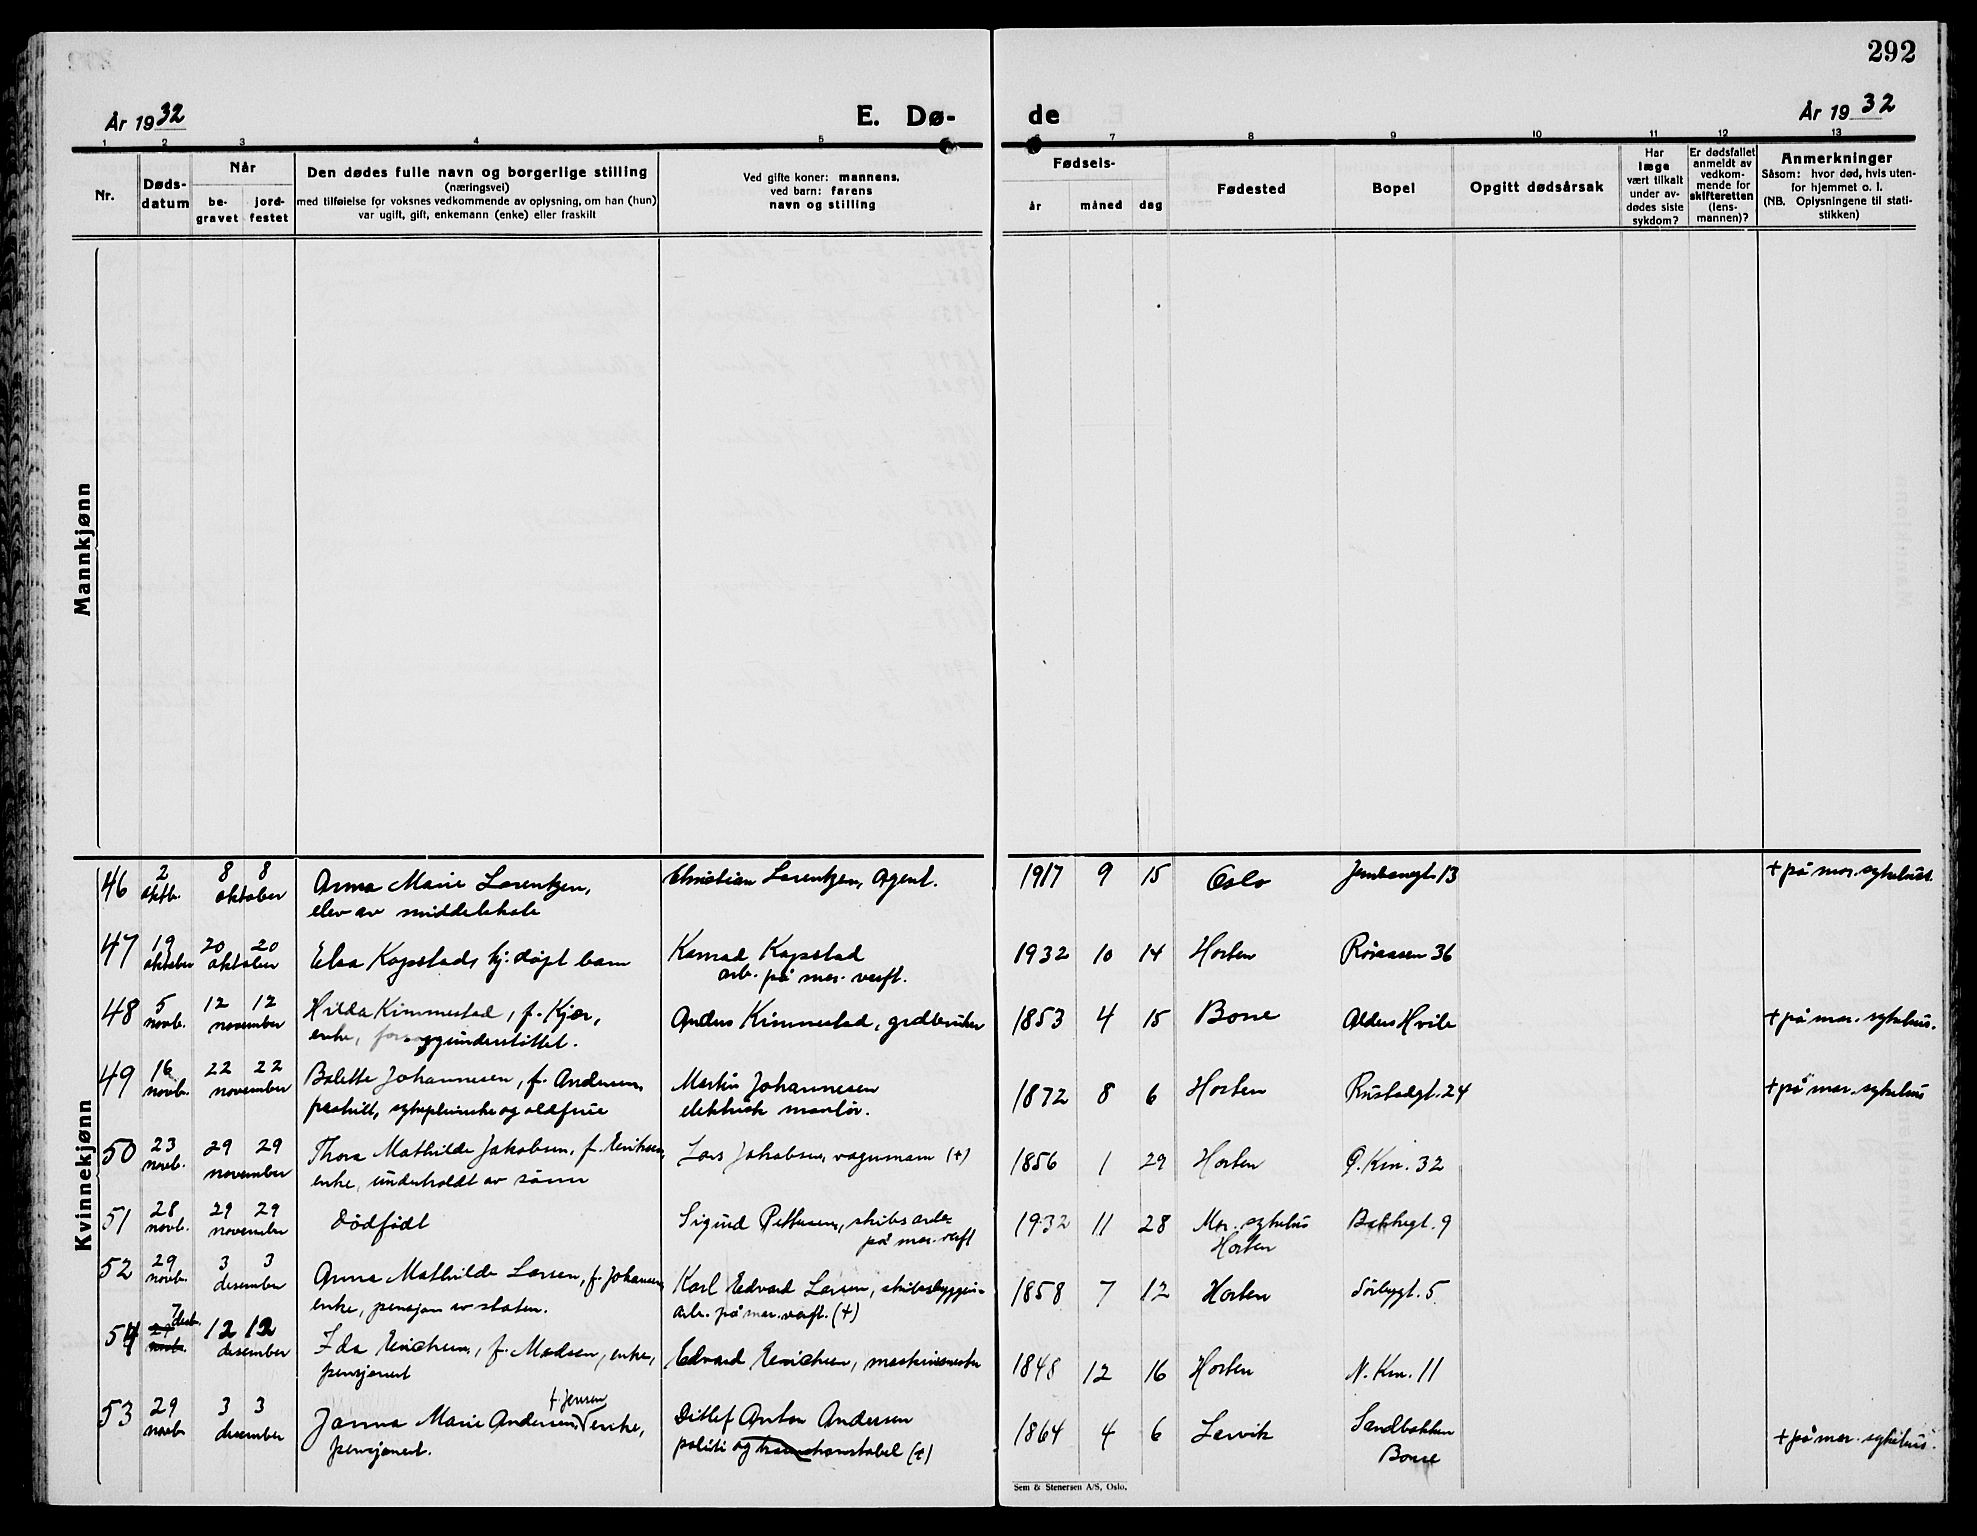 292
År 1932
E. Dø-
de
År 1932
1 2 3 4 5 6 7 8 9 10 11 12 13
Nr.
Døds-
datum
Når
be-
gravet
jord-
festet
Den dødes fulle navn og borgerlige stilling
(næringsvei)
med tilføielse for voksnes vedkommende av oplysning, om han (hun)
var ugift, gift, enkemann (enke) eller fraskilt
Ved gifte koner: mannens,
ved barn: farens
navn og stilling
Fødsels-
år måned dag
Fødested
Bopel
Opgitt dødsårsak
Har
læge
vært tilkalt
under av-
dødes siste
sykdom?
Er dødsfallet
anmeldt av
vedkom-
mende for
skifteretten
(lens-
mannen)?
Anmerkninger
Såsom: hvor død, hvis uten-
for hjemmet o. l.
(NB. Oplysningene til stati-
stikken)
Mannkjønn
Kvinnekjønn
46 2 8 8 Anna Marie Lorentzen, Christian Lorentzen, Agent. 1917 9 15 Oslo Jernbanegt. 13 + på mar. sykehus.
oktb. oktober elev av middelskole
47 19 20 20 Elsa Kopstads hj. døpt barn Konrad Kopstad 1932 10 14 Horten Røraasen 36
oktober oktober arb. på mar. verft.
48 5 12 12 Hilda Kimmestad, f. Kjær, Anders Kimmestad, grdbruker 1853 4 15 Borre Alders Hvile + på mar. sykehus.
novb. november enke, forsorgsunderstøttet.
49 16 22 22 Bolette Johannesen, f. Andersen, Martin Johannesen 1872 8 6 Horten Rustadgt. 24 + på mar. sykehus
novb. november fraskilt, sykepleierske og oldfrue elektrisk montør.
50 23 29 29 Thora Mathilde Jakobsen, f. Eriksen, Lars Jakobsen, vognmann (+) 1856 1 29 Horten 32
novb. november enke, underholdt av sønn
51 28 29 29 Dødfødt Sigurd Pettersen, skibsarb. 1932 11 28 Mar. sykehus Bakkegt. 9
novb. november på mar. verft Horten
52 29 3 3 Anna Mathilde Larsen, f. Johansen, Karl Edvard Larsen, skibsbyggeri- 1858 7 12 Horten Sørbygt. 5
novb. desember enke, pensjon av staten. arb. på mar. verft. (+)
54 7 desb. 12 12 Ida Erichsen, f. Madsen, enke, Edvard Erichsen, 1848 12 16 Horten N. Km. 11
29 novb. desember pensjonert
53 29 3 3 Janna Marie Andersen, f. Jensen enke, Ditlef Anton Andersen 1864 4 6 Larvik Sandbakken
novb. desember pensjonert. politi og konstabel (+) Borre + på mar. sykehus.
Sem & Stenersen A/S, Oslo.